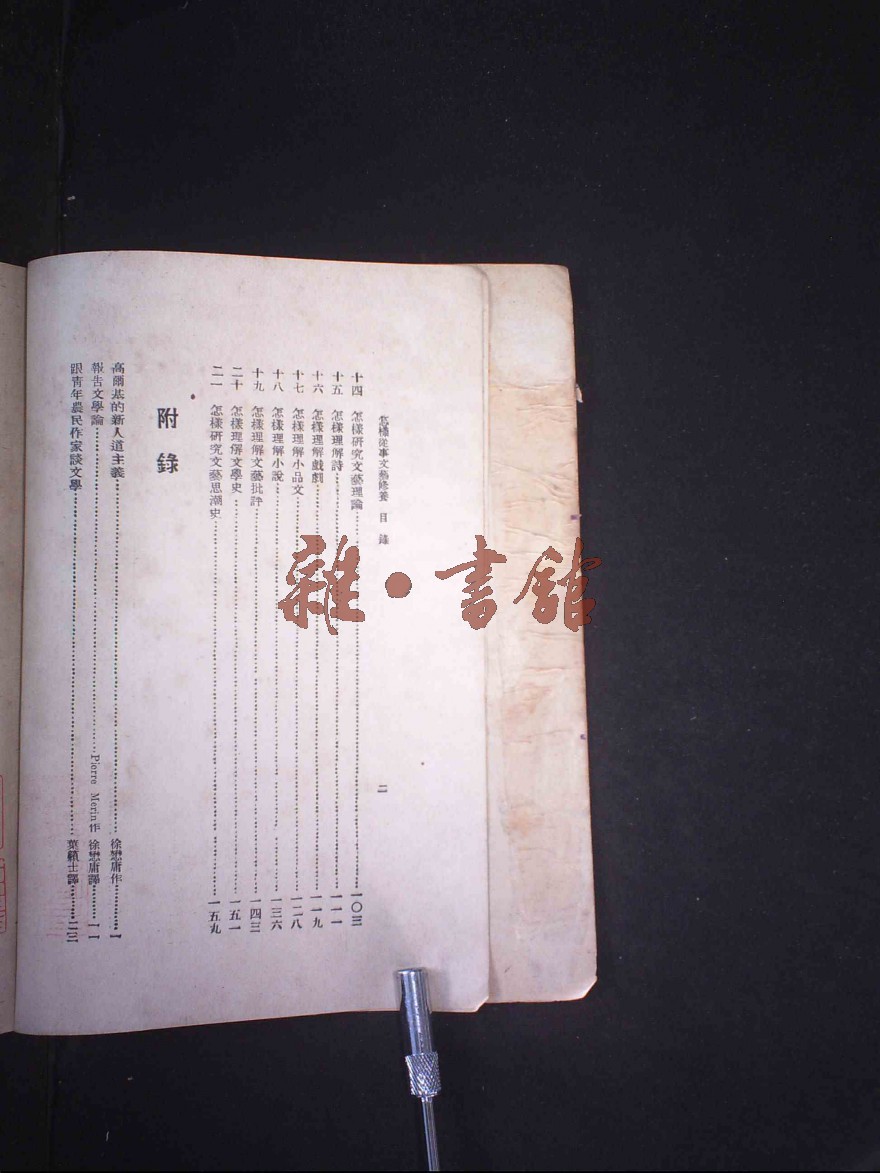 怎樣從事文藝修養 目錄
二
十四 怎樣研究文藝理論……一〇三
十五 怎樣理解詩……一一一
十六 怎樣理解戲劇……一一九
十七 怎樣理解小品文……一二八
十八 怎樣理解小說……一三六
十九 怎樣理解文藝批評……一四三
二十 怎樣理解文學史……一五一
二一 怎樣研究文藝思潮史……一五九
附錄
高爾基的新人道主義……徐懋庸作……一
報告文學論……Pierre Merin作 徐懋庸譯……一一
跟青年農民作家談文學……葉籟士譯……二三
雜·書館